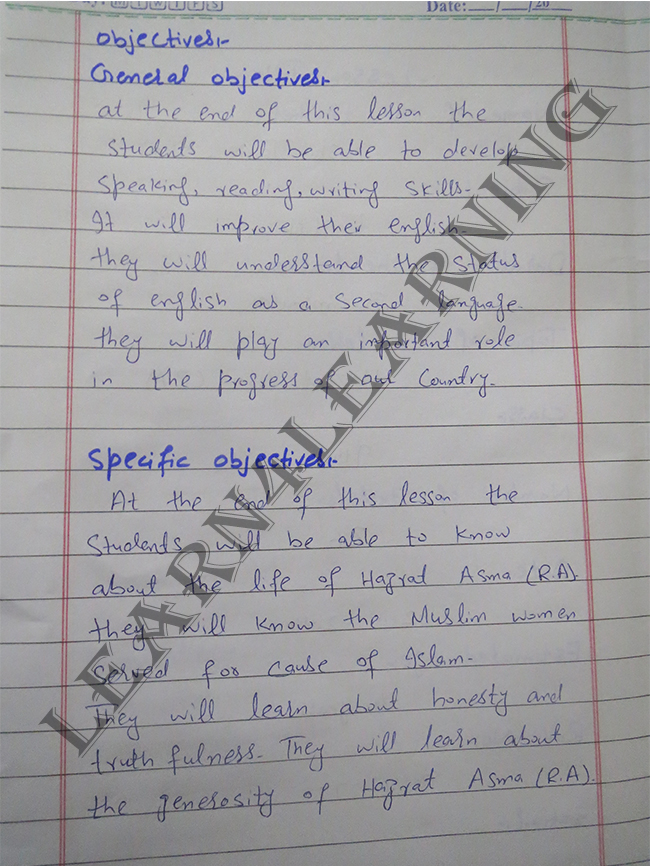 M T W T F S
Date: / /20
Objectives:-
General objectives:-
at the end of this lesson the
students will be able to develop
speaking, reading, writing skills.
It will improve their english.
they will understand the status
of english as a second language.
they will play an important role
in the progress of our Country.
Specific objectives:-
At the end of this lesson the
Students will be able to know
about the life of Hazrat Asma (R.A).
they will know the Muslim women
served for cause of Islam.
They will learn about honesty and
truth fulness. They will learn about
the generosity of Hazrat Asma (R.A).
LEARN4LEARNING